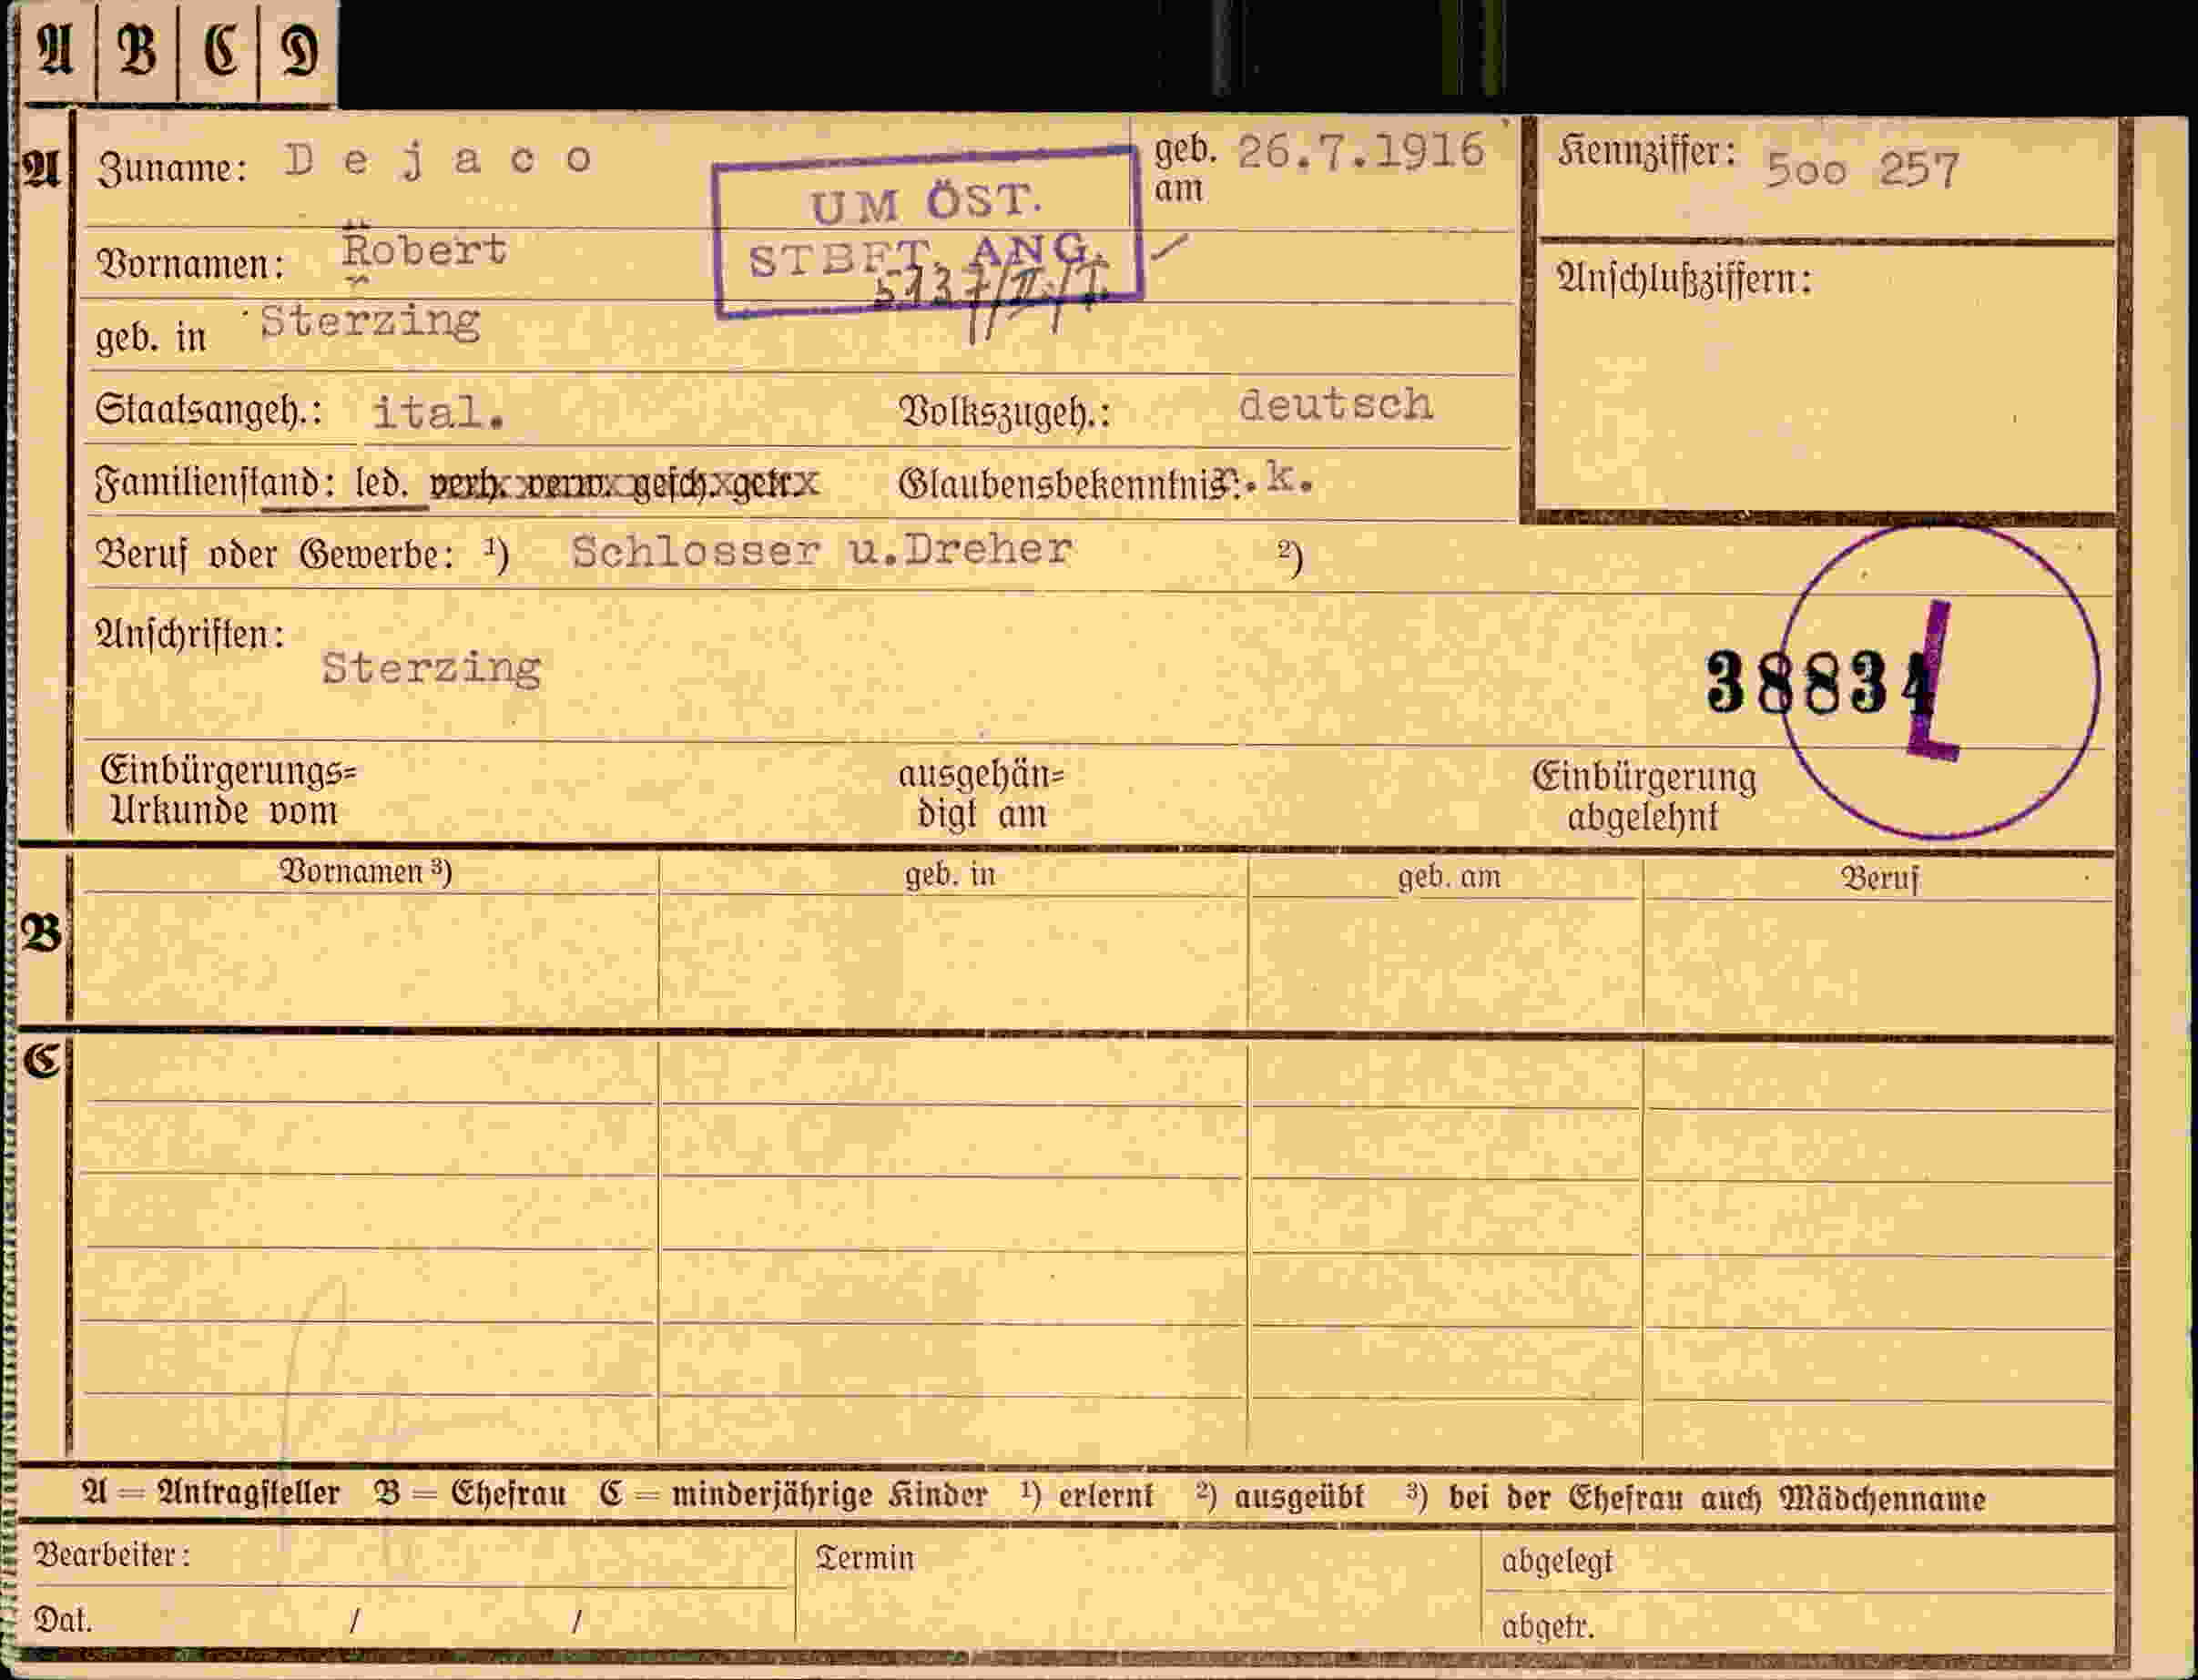 A B C D
A Zuname: Dejaco geb. am 26.7.1916 Kennziffer: 500 257
UM ÖST.
STBFT. ANG.
Vornamen: Robert
Anschlußziffern:
geb. in Sterzing
Staatsangeh.: ital. Volkszugeh.: deutsch
Familienstand: led. verh. verw. gesch. getr. Glaubensbekenntnis: r.k.
Beruf oder Gewerbe: ¹) Schlosser u.Dreher ²)
Anschriften:
Sterzing
38834 L
Einbürgerungs=
Urkunde vom
ausgehän=
digt am
Einbürgerung
abgelehnt
B Vornamen ³) geb. in geb. am Beruf
C
A = Antragsteller B = Ehefrau C = minderjährige Kinder ¹) erlernt ²) ausgeübt ³) bei der Ehefrau auch Mädchenname
Bearbeiter: Termin abgelegt
Dat. / / abgetr.